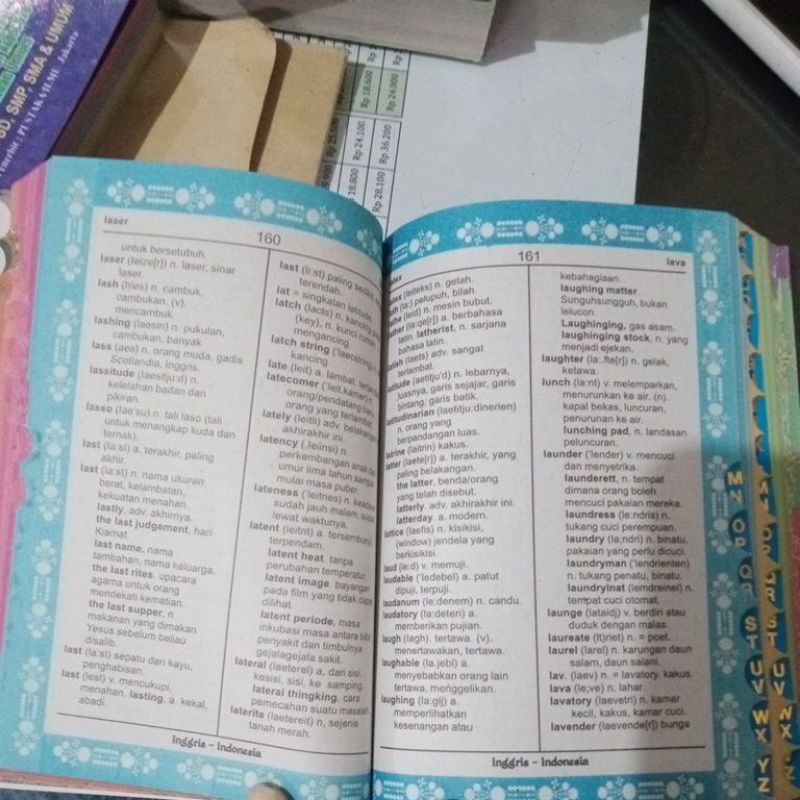 SD, SMP, SMA & UMUM
Jakarta
Rp 18.600
Rp 24.900
Rp 24.100
Rp 36.200
Rp 18.800
Rp 28.100
laser
160
untuk bersetubuh.
laser (leize[r]) n. laser, sinar
laser.
lash (hies) n. cambuk,
cambukan. (v).
mencambuk
lashing (laesin) n. pukulan,
cambukan. banyak
lass (aes) n. orang muda, gadis
Scotlandia, Inggris.
lassitude (laesitju:d) n.
kelelahan badan dan
pikiran.
lasso (lae'su) n. tali laso (tali
untuk menangkap kuda dan
ternak).
last (la:sl) a. terakhir, paling
akhir.
last (la:st) n. nama ukuran
berat, kelambatan,
kekuatan menahan.
lastly. adv. akhirnya.
the last judgement, hari
Kiamat.
last name. nama
tambahan, nama keluarga.
the last rites. upacara
agama untuk orang
mendekati kematian.
the last supper, n
makanan yang dimakan
Yesus sebelum beliau
disalib.
last (la:st) sepatu dari kayu,
penghabisan.
last (lest) v. mencukupi,
menahan. lasting. a. kekal,
abadi.
last (li:st) paling
terendah.
lat = singkatan latitude.
latch (lacts) n. kancing
(key), n. kunci
mengancing.
latch string
kancing.
late (leit) a. lambat,
latecomer ('leit.kamer) n.
orang/pendatang
orang yang terlambat.
lately (leitli) adv.
akhirakhir ini.
latency (.leiinsi) n.
perkembangan anak
umur lima tahun sampai
mulai masa puber.
lateness ('leitnes) n.
sudah jauh malam,
lewat waktunya.
latent (leitnt) a. tersembunyi,
terpendam.
latent heat. tanpa
perubahan temperatur.
latent image. bayangan
pada film yang tidak dapat
dilihat.
latent periode, masa
inkubasi masa antara bibit
penyakit dan timbulnya
gejalagejala sakit.
lateral (laeterel) a, dari sisi,
kesisi, sisi, ke samping.
lateral thingking. cara
pemecahan suatu masalah
laterite (laetereit) n, sejenis
tanah merah.
Inggris - Indonesia
161
lava
(leiteks) n. getah.
(la:) pelupuh, bilah.
(leid) n. mesin bubut.
(la:qe[r]) a. berbahasa
latin. latherist, n. sarjana
bahasa latin.
(laets) adv. sangat
terlambat.
(aetitju'd) n. lebarnya,
luasnya, garis sejajar, garis
bintang, garis batik.
latitudinarian (laetitju:dinerien)
n. orang yang
berpandangan luas.
latrine (laitrin) kakus.
latter (laete[r]) a. terakhir, yang
paling belakangan.
the latter, benda/orang
yang telah disebut.
latterly. adv. akhirakhir ini.
latterday. a. modern.
lattice (laefis) n. kisikisi,
(window) jendela yang
berkisikisi.
laud (le:d) v. memuji.
laudable ('ledebel) a. patut
dipuji, terpuji.
laudanum (le:denem) n. candu.
laudatory (la:deteri) a.
memberikan pujian.
laugh (lagh). tertawa. (v).
menertawakan, tertawa.
laughable (la.jebl) a.
menyebabkan orang lain
tertawa, menggelikan.
laughing (la:gij) a.
memperlihatkan
kesenangan atau
kebahagiaan.
laughing matter.
Sunguhsungguh, bukan
lelucon.
Laughinging, gas asam.
laughing stock, n. yang
menjadi ejekan.
laughter (la:.fte[r]) n. gelak,
ketawa.
lunch (la:nt) v. melemparkan,
menurunkan ke air. (n).
kapal bekas, luncuran,
penurunan ke air.
lunching pad, n. landasan
peluncuran.
launder ('lender) v. mencuci
dan menyetrika.
launderett, n. tempat
dimana orang boleh
mencuci pakaian mereka.
laundress (le:ndris) n.
tukang cuci perempuan.
laundry (la;ndri) n. binatu,
pakaian yang perlu dicuci.
laundryman ('lendrienten)
n. tukang penatu, binatu.
laundryinat (lemdreinel) n.
tempat cuci otomat.
launge (iataidj) v. berdiri atau
duduk dengan malas.
laureate (lt)riet) n. = poet.
laurel (larel) n. karungan daun
salam, daun salani.
lav. (laev) n. = lavatory. kakus.
lava (le;ve) n. lahar.
lavatory (laevetri) n. kamar
kecil, kakus, kamar cuci.
lavender (laevende[r]) bunga
Inggris - Indonesia
MN
OP
QR
ST
UV
WX
YZ